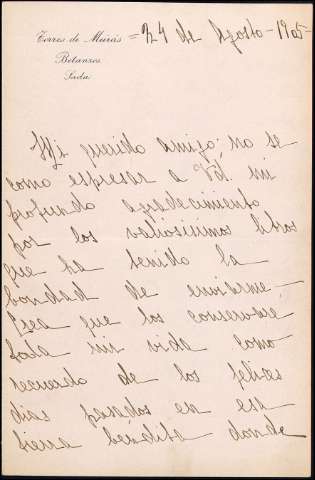 Torres de Meirás = 24 de Agosto - 1905 -
Betanzos
Sada
Mi querido amigo: no se
como espresar a Vd. mi
profundo agradecimiento
por los valiosisimos libros
que ha tenido la
bondad de enviarme -
Crea que los conservaré
toda mi vida como
recuerdo de los felices
dias pasados en esa
tierra bendita donde